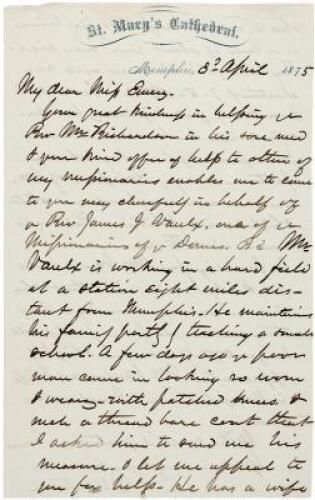 St. Mary's Cathedral.
Memphis, 3d April 1875
My dear Miss Emery.
Your great kindness in helping ye
Rev Mr Richardson in his sore need
& your kind offer of help to others of
my missionaries enables me to come
to you very cheerfully in behalf of
ye Rev James J Vaulx, one of ye
Missionaries of ye Domes. Bd. Mr
Vaulx is working in a hard field
at a station eight miles dis-
tant from Memphis. He maintains
his family partly by teaching a small
school. A few days ago ye poor
man came in looking so worn
& weary - with patched knees &
such a thread bare coat that
I asked him to send me his
measure & let me appeal to
you for help - He has a wife